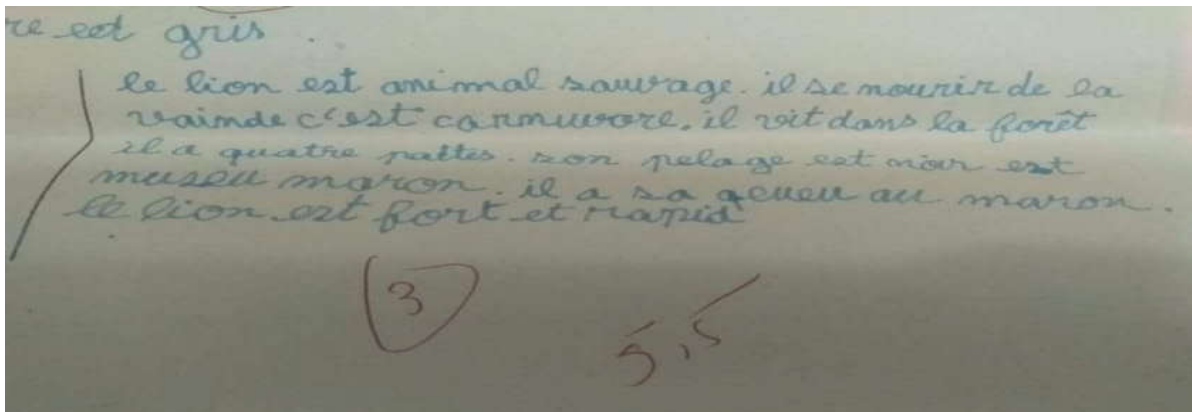 re est gris .
le lion est animal sauvage. il se nourir de la
vainde c'est carnuvore. il vit dans la forêt
il a quatre pattes. son pelage est noir est
museu maron. il a sa geueu au maron.
le lion est fort et rapid
3
5,5